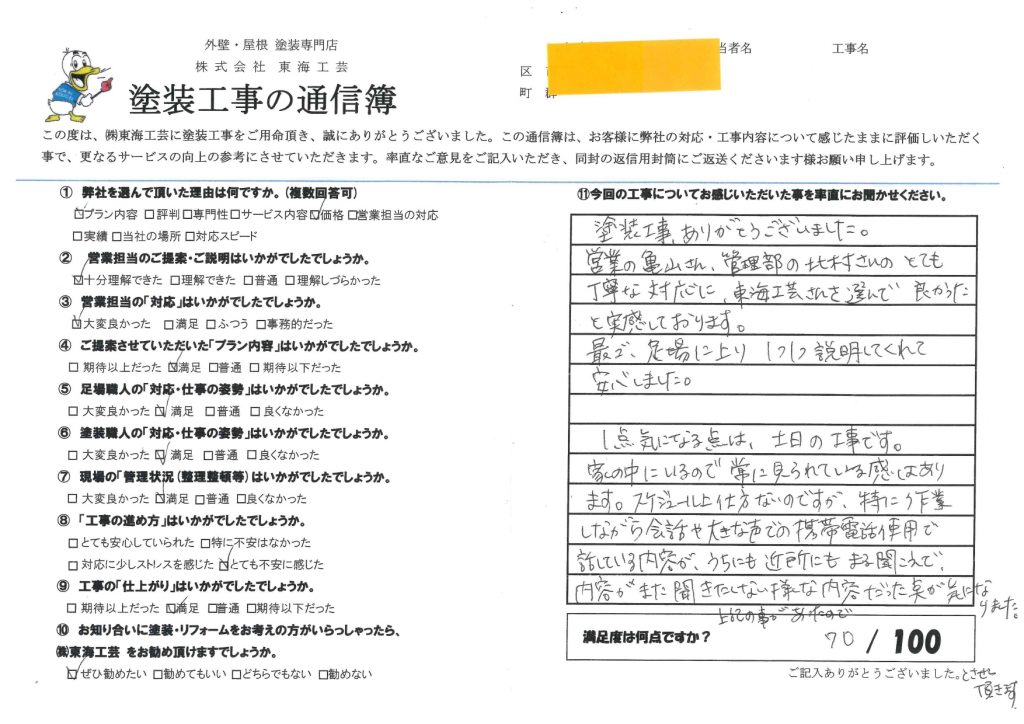 外壁・屋根 塗装専門店
株式会社 東海工芸
塗装工事の通信簿
区
町
当者名
工事名
この度は、㈱東海工芸に塗装工事をご用命頂き、誠にありがとうございました。この通信簿は、お客様に弊社の対応・工事内容について感じたままに評価しいただく
事で、更なるサービスの向上の参考にさせていただきます。率直なご意見をご記入いただき、同封の返信用封筒にご返送くださいます様お願い申し上げます。
① 弊社を選んで頂いた理由は何ですか。(複数回答可)
☑プラン内容 □評判 □専門性 □サービス内容 ☑価格 □営業担当の対応
□実績 □当社の場所 □対応スピード
② 営業担当のご提案・ご説明はいかがでしたでしょうか。
☑十分理解できた □理解できた □普通 □理解しづらかった
③ 営業担当の「対応」はいかがでしたでしょうか。
☑大変良かった □満足 □ふつう □事務的だった
④ ご提案させていただいた「プラン内容」はいかがでしたでしょうか。
□期待以上だった ☑満足 □普通 □期待以下だった
⑤ 足場職人の「対応・仕事の姿勢」はいかがでしたでしょうか。
□大変良かった ☑満足 □普通 □良くなかった
⑥ 塗装職人の「対応・仕事の姿勢」はいかがでしたでしょうか。
□大変良かった ☑満足 □普通 □良くなかった
⑦ 現場の「管理状況(整理整頓等)はいかがでしたでしょうか。
□大変良かった ☑満足 □普通 □良くなかった
⑧ 「工事の進め方」はいかがでしたでしょうか。
□とても安心していられた □特に不安はなかった
□対応に少しストレスを感じた ☑とても不安に感じた
⑨ 工事の「仕上がり」はいかがでしたでしょうか。
□期待以上だった ☑満足 □普通 □期待以下だった
⑩ お知り合いに塗装・リフォームをお考えの方がいらっしゃったら、
㈱東海工芸 をお勧め頂けますでしょうか。
☑ぜひ勧めたい □勧めてもいい □どちらでもない □勧めない
⑪今回の工事についてお感じいただいた事を率直にお聞かせください。
塗装工事、ありがとうございました。
営業の亀山さん、管理部の北村さんの とても
丁寧な対応に、東海工芸さんを選んで 良かった
と実感しております。
最后、足場に上り 1つ1つ説明してくれて
安心しました。
1点気になる点は、土日の工事です。
家の中にいるので常に見られている感はあり
ます。スケジュール上仕方ないのですが、特に 作業
しながら会話や大きな声での携帯電話使用で
話している内容が、うちにも近所にも まる聞こえで、
内容がまた聞きたくない様な内容だった事が気になりました。
満足度は何点ですか？ 70 / 100
上記の事があったので
とさせて
頂きます
ご記入ありがとうございました。